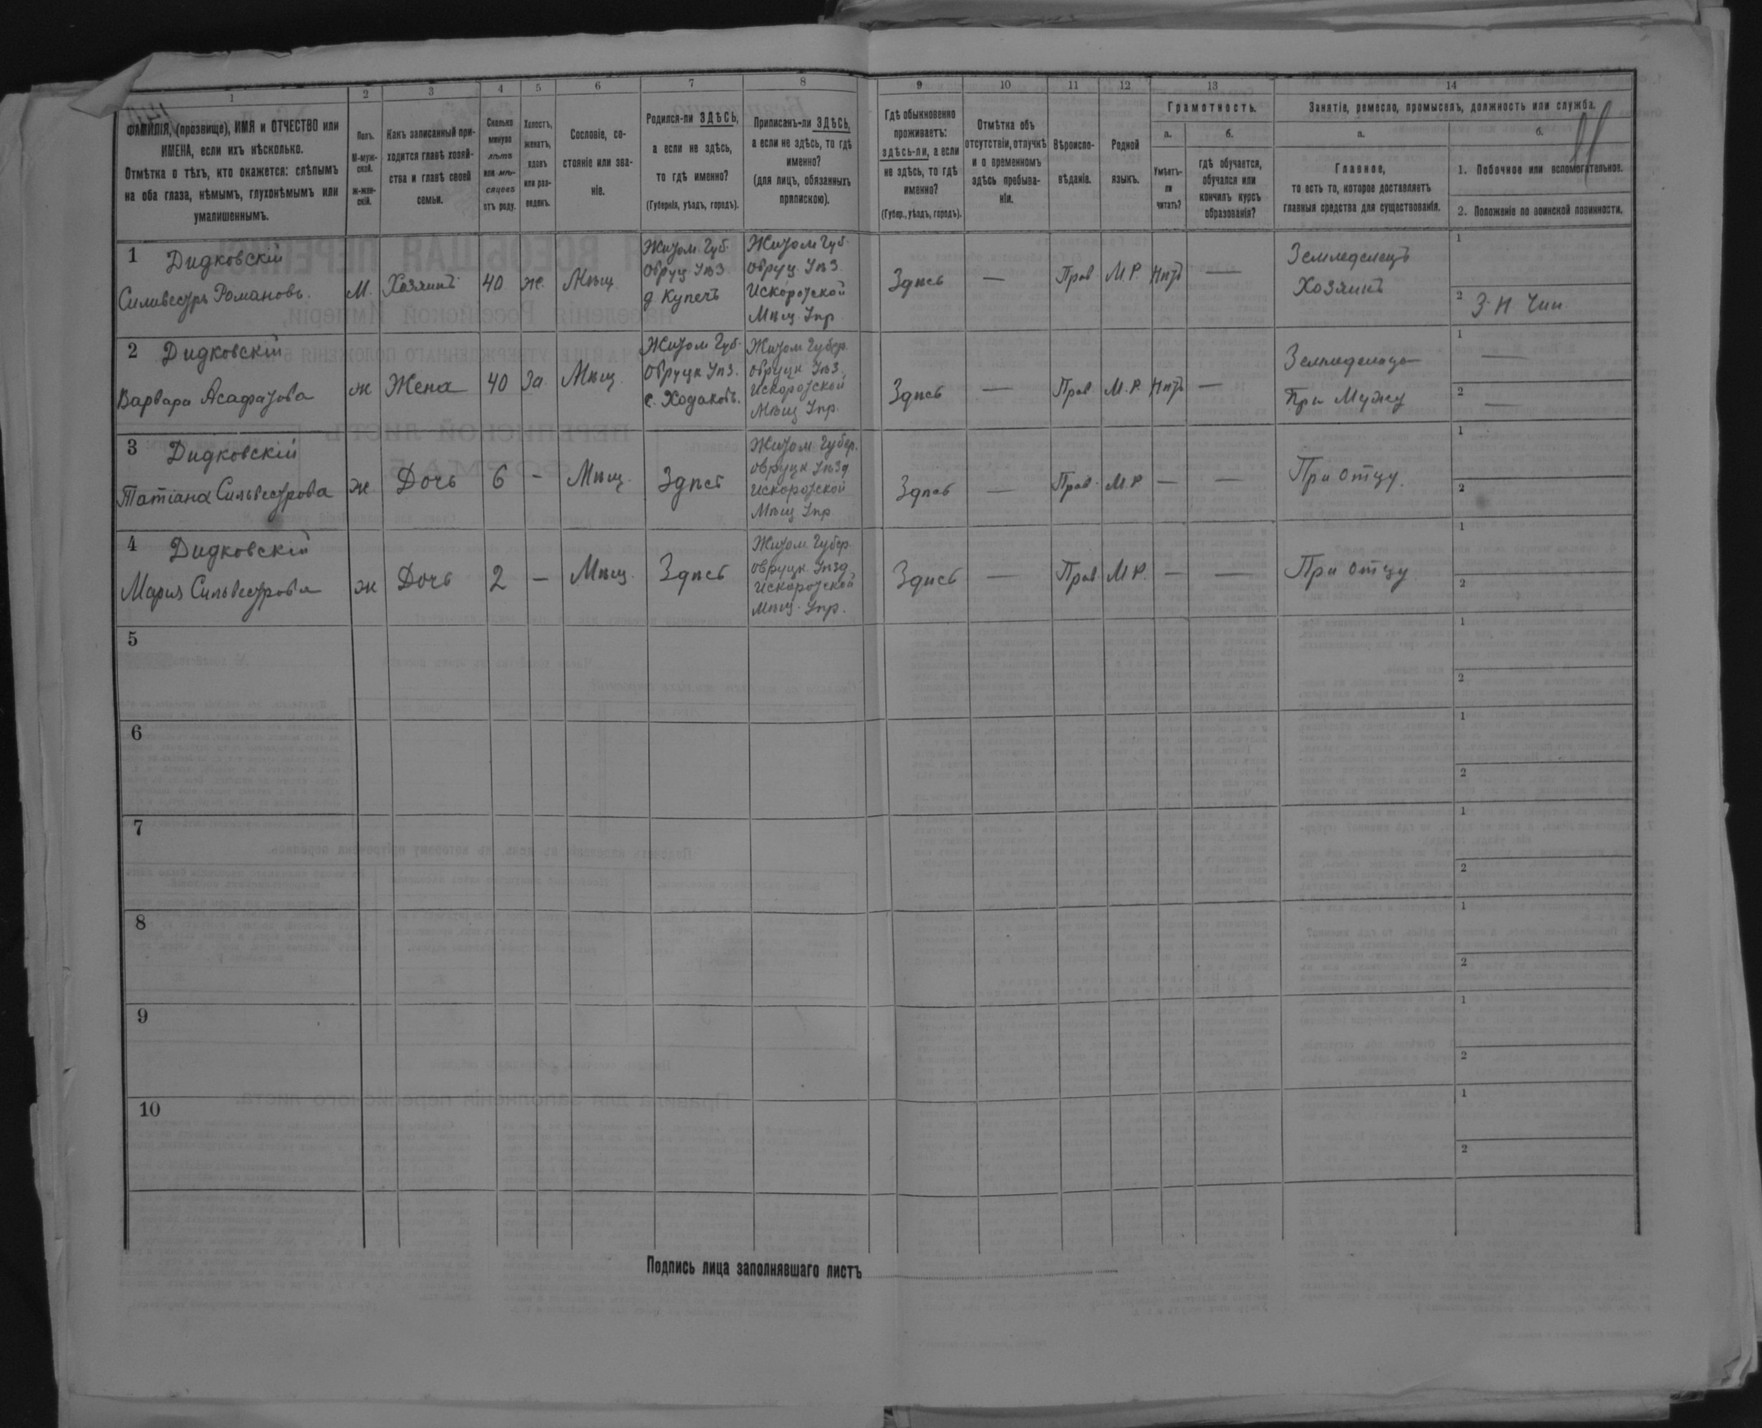 1 2 3 4 5 6 7 8 9 10 11 12 13 14
ФАМИЛІЯ, (прозвище), ИМЯ и ОТЧЕСТВО или
ИМЕНА, если ихъ нѣсколько.
Отмѣтка о тѣхъ, кто окажется: слѣпымъ
на оба глаза, нѣмымъ, глухонѣмымъ или
умалишеннымъ.
Полъ.
М-муж-
ской.
ж-жен-
скій.
Какъ записанный при-
ходится главѣ хозяй-
ства и главѣ своей
семьи.
Сколько
минуло
лѣтъ
или мѣ-
сяцевъ
отъ роду.
Холостъ,
женатъ,
вдовъ
или раз-
веденъ.
Сословіе, со-
стояніе или зва-
ніе.
Родился-ли ЗДѢСЬ,
а если не здѣсь,
то гдѣ именно?
(Губернія, уѣздъ, городъ).
Приписанъ-ли ЗДѢСЬ,
а если не здѣсь, то гдѣ
именно?
(для лицъ, обязанныхъ
припискою).
Гдѣ обыкновенно
проживаетъ:
здѣсь-ли, а если
не здѣсь, то гдѣ
именно?
(Губер., уѣздъ, городъ).
Отмѣтка объ
отсутствіи, отлучкѣ
и о временномъ
здѣсь пребыва-
ніи.
Вѣроиспо-
вѣданіе.
Родной
языкъ.
Грамотность.
а.
Умѣетъ-
ли
читать?
б.
гдѣ обучается,
обучался или
кончилъ курсъ
образованія?
Занятіе, ремесло, промыселъ, должность или служба.
а.
Главное,
то есть то, которое доставляетъ
главныя средства для существованія.
б.
1. Побочное или вспомогательное.
2. Положеніе по воинской повинности.
1 Дидковскій
Сильвестръ Романовъ.
М. Хозяинъ 40 ж. Мѣщ.
Житом. Губ.
Овруц. Уѣз.
д. Купечъ
Житом Губ.
Овруц. Уѣз.
Искоротской
Мѣщ. Упр.
Здѣсь — Прав М.Р. Нѣтъ —
Земледелецъ
Хозяинъ
1
2
2 Дидковскій
Варвара Асафатова
ж Жена 40 За. Мѣщ.
Житом Губ.
Овруцк Уѣз.
с. Ходаковъ.
Житом Губер.
Овруцк Уѣз.
Искоротской
Мѣщ Упр.
Здѣсь — Прав М.Р. Нѣтъ —
При Мужу
1 —
2 —
3 Дидковскій
Татіана Сильвестрова
ж Дочь 6 — Мѣщ. Здѣсь
Житом. Губер.
Овруцк. Уѣзд
Искоротской
Мѣщ Упр
Здѣсь — Прав. М.Р. — —
При отцу.
1
2
4 Дидковскій
Мария Сильвестрова
ж Дочь 2 — Мѣщ. Здѣсь
Житом. Губер.
Овруцк. Уѣзд
Искоротской
Мѣщ. Упр.
Здѣсь — Прав М.Р. — —
При отцу
1
2
5
1
2
6
1
2
7
1
2
8
1
2
9
1
2
10
1
2
Подпись лица заполнявшаго листъ